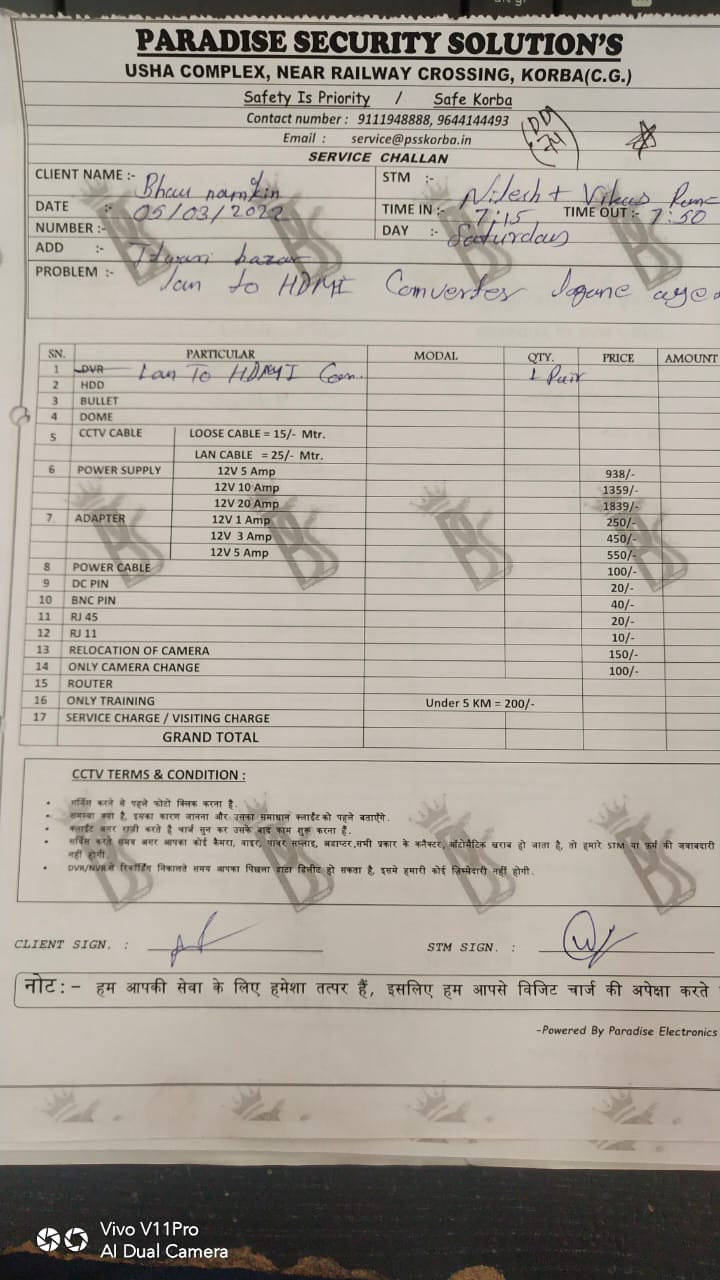 PARADISE SECURITY SOLUTION'S
USHA COMPLEX, NEAR RAILWAY CROSSING, KORBA(C.G.)
Safety Is Priority / Safe Korba
Contact number : 9111948888, 9644144493
Email : service@psskorba.in
SERVICE CHALLAN
CLIENT NAME :- Bhau namkin
STM :- Nilesh + Vikas
DATE :- 05/03/2022
TIME IN :- 7:15 TIME OUT :- 7:50
NUMBER :-
DAY :- Saturday
ADD :- Itwari bazar
PROBLEM :- lan to HDMI Converter lagane aye
SN. PARTICULAR MODAL QTY. PRICE AMOUNT
1 DVR Lan To HDMI Con. 1 Pair
2 HDD
3 BULLET
4 DOME
5 CCTV CABLE LOOSE CABLE = 15/- Mtr.
LAN CABLE = 25/- Mtr.
6 POWER SUPPLY 12V 5 Amp 938/-
12V 10 Amp 1359/-
12V 20 Amp 1839/-
7 ADAPTER 12V 1 Amp 250/-
12V 3 Amp 450/-
12V 5 Amp 550/-
8 POWER CABLE 100/-
9 DC PIN 20/-
10 BNC PIN 40/-
11 RJ 45 20/-
12 RJ 11 10/-
13 RELOCATION OF CAMERA 150/-
14 ONLY CAMERA CHANGE 100/-
15 ROUTER
16 ONLY TRAINING Under 5 KM = 200/-
17 SERVICE CHARGE / VISITING CHARGE
GRAND TOTAL
CCTV TERMS & CONDITION :
• सर्विस करने से पहले फोटो क्लिक करना है.
• समस्या क्या है, इसका कारण जानना और उसका समाधान क्लाईंट को पहले बताएँगे.
• क्लाईंट अगर राज़ी करते है चार्ज सुन कर उसके बाद काम शुरू करना हैं.
• सर्विस करते समय अगर आपका कोई कैमरा, वाइर, पावर सप्लाइ, अडाप्टर,सभी प्रकार के कनैक्टर, ऑटोमैटिक खराब हो जाता है, तो हमारे STM या फ़र्म की जवाबदारी
नहीं होगी.
• DVR/NVR से रिकॉर्डिंग निकालते समय आपका पिछला डाटा डिलीट हो सकता है, इसमे हमारी कोई ज़िम्मेदारी नहीं होगी.
CLIENT SIGN. :
STM SIGN. :
नोट:- हम आपकी सेवा के लिए हमेशा तत्पर हैं, इसलिए हम आपसे विजिट चार्ज की अपेक्षा करते
-Powered By Paradise Electronics
Vivo V11Pro
AI Dual Camera